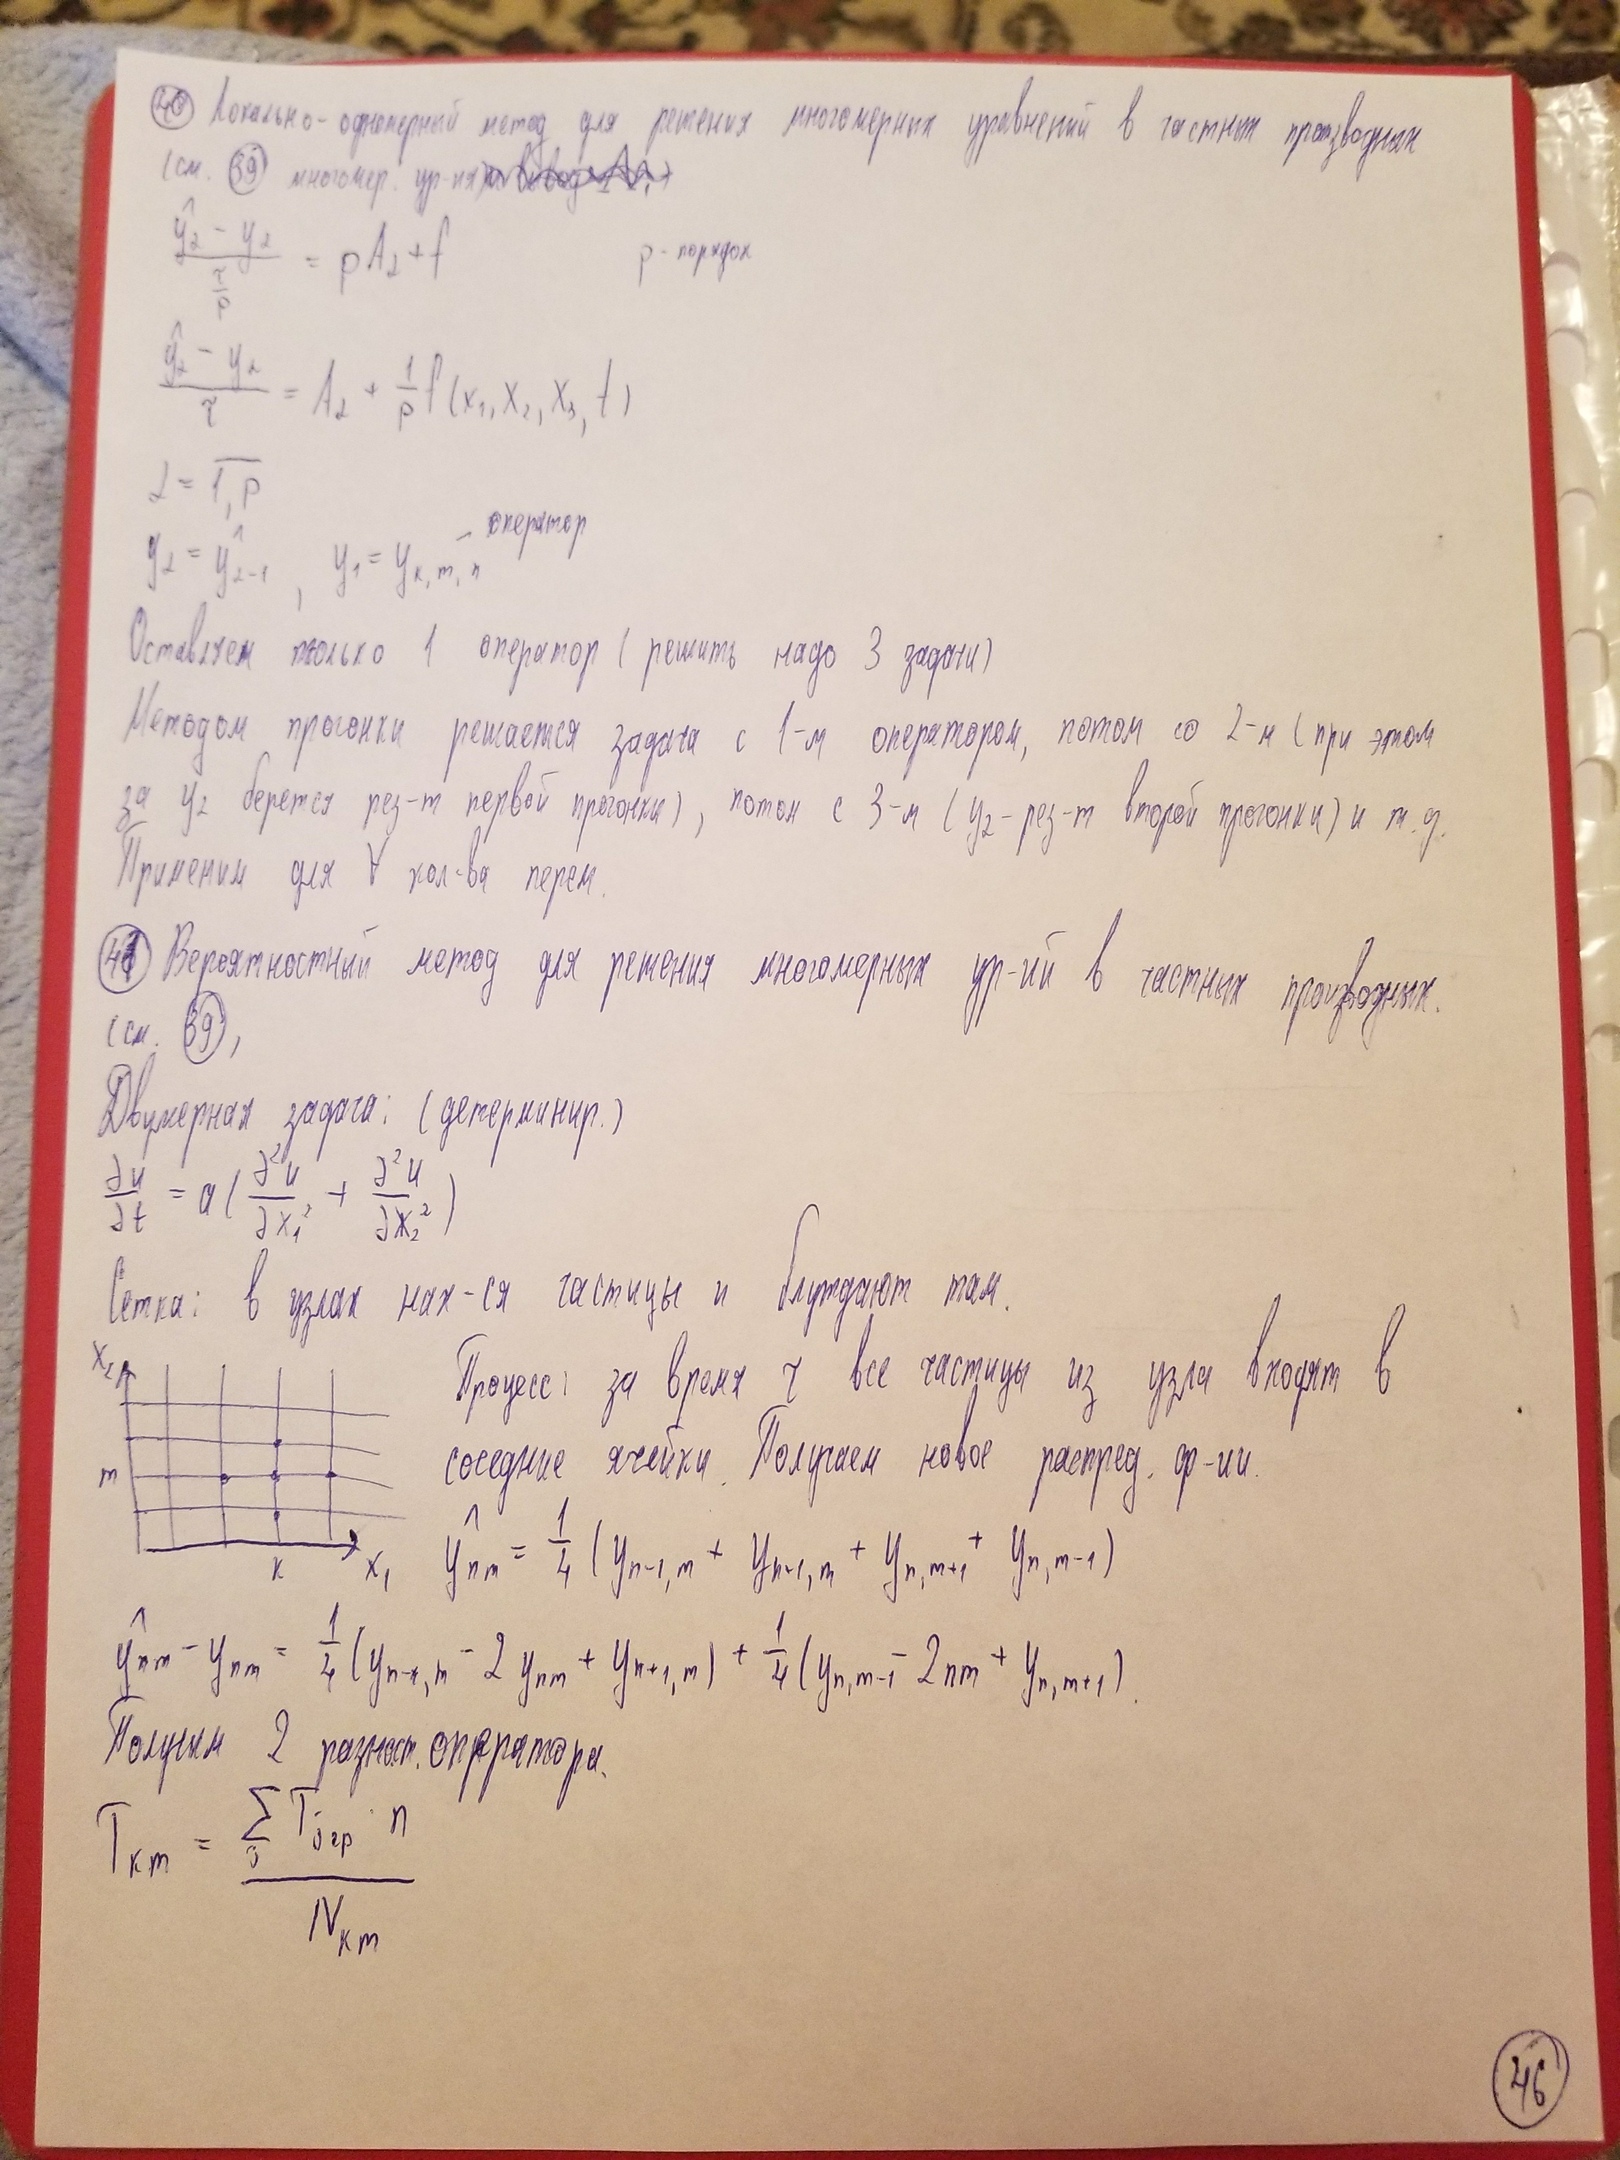 40 Локально-одномерный метод для решения многомерных уравнений в частных производных
(см. 39 многомер. ур-ия)
(ŷ₂ - y₂)/(τ/p) = pA₂ + f p - порядок
(ŷ₂ - y₂)/τ = A₂ + 1/p f(x₁, x₂, x₃, t)
2 = 1,p
y₂ = ŷ₂₋₁, y₁ = y_{k,m,n} оператор
Оставляем только 1 оператор (решить надо 3 задачи)
Методом прогонки решается задача с 1-м оператором, потом со 2-м (при этом
за y₂ берется рез-т первой прогонки), потом с 3-м (y₂ - рез-т второй прогонки) и т.д.
Применим для ∀ кол-ва перем.
41 Вероятностный метод для решения многомерных ур-ий в частных производных.
(см. 39),
Двумерная задача: (детерминир.)
∂u/∂t = a(∂²u/∂x₁² + ∂²u/∂x₂²)
Сетка: в узлах нах-ся частицы и блуждают там.
x₂
m
k x₁
Процесс: за время τ все частицы из узла входят в
соседние ячейки. Получаем новое распред. ф-ии.
ŷ_{nm} = 1/4 (y_{n-1,m} + y_{n+1,m} + y_{n,m+1} + y_{n,m-1})
ŷ_{nm} - y_{nm} = 1/4 (y_{n-1,m} - 2y_{nm} + y_{n+1,m}) + 1/4 (y_{n,m-1} - 2nm + y_{n,m+1}).
Получим 2 разност. оператора.
T_{km} = (∑_j T_{j гр} · n)/N_{km}
46